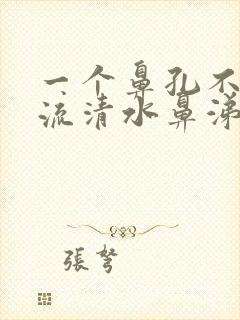 一个鼻孔不
流清水鼻涕
張弩